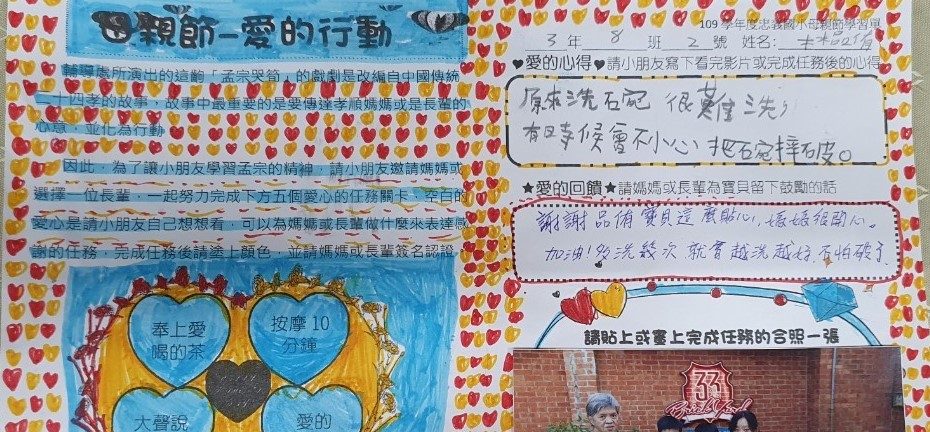 母親節—愛的行動
輔導處所演出的這齣「孟宗哭筍」的戲劇是改編自中國傳統
二十四孝的故事，故事中最重要的是要傳達孝順媽媽或是長輩的
心意，並化為行動。
因此，為了讓小朋友學習孟宗的精神，請小朋友邀請媽媽或
選擇一位長輩，一起努力完成下方五個愛心的任務關卡，空白的
愛心是請小朋友自己想想看，可以為媽媽或長輩做什麼來表達感
謝的任務，完成任務後請塗上顏色，並請媽媽或長輩簽名認證。
奉上愛
喝的茶
按摩 10
分鐘
大聲說
愛的
109 學年度忠義國小母親節學習單
3 年 8 班 2 號 姓名：
♥愛的心得♥請小朋友寫下看完影片或完成任務後的心得
原來洗石宛 很難洗，
有時候會不小心把石宛摔石皮。
★愛的回饋★請媽媽或長輩為寶貝留下鼓勵的話
謝謝品侑寶貝這麼貼心，媽媽很開心。
加油!多洗幾次 就會越洗越好 不怕破了
請貼上或畫上完成任務的合照一張
33